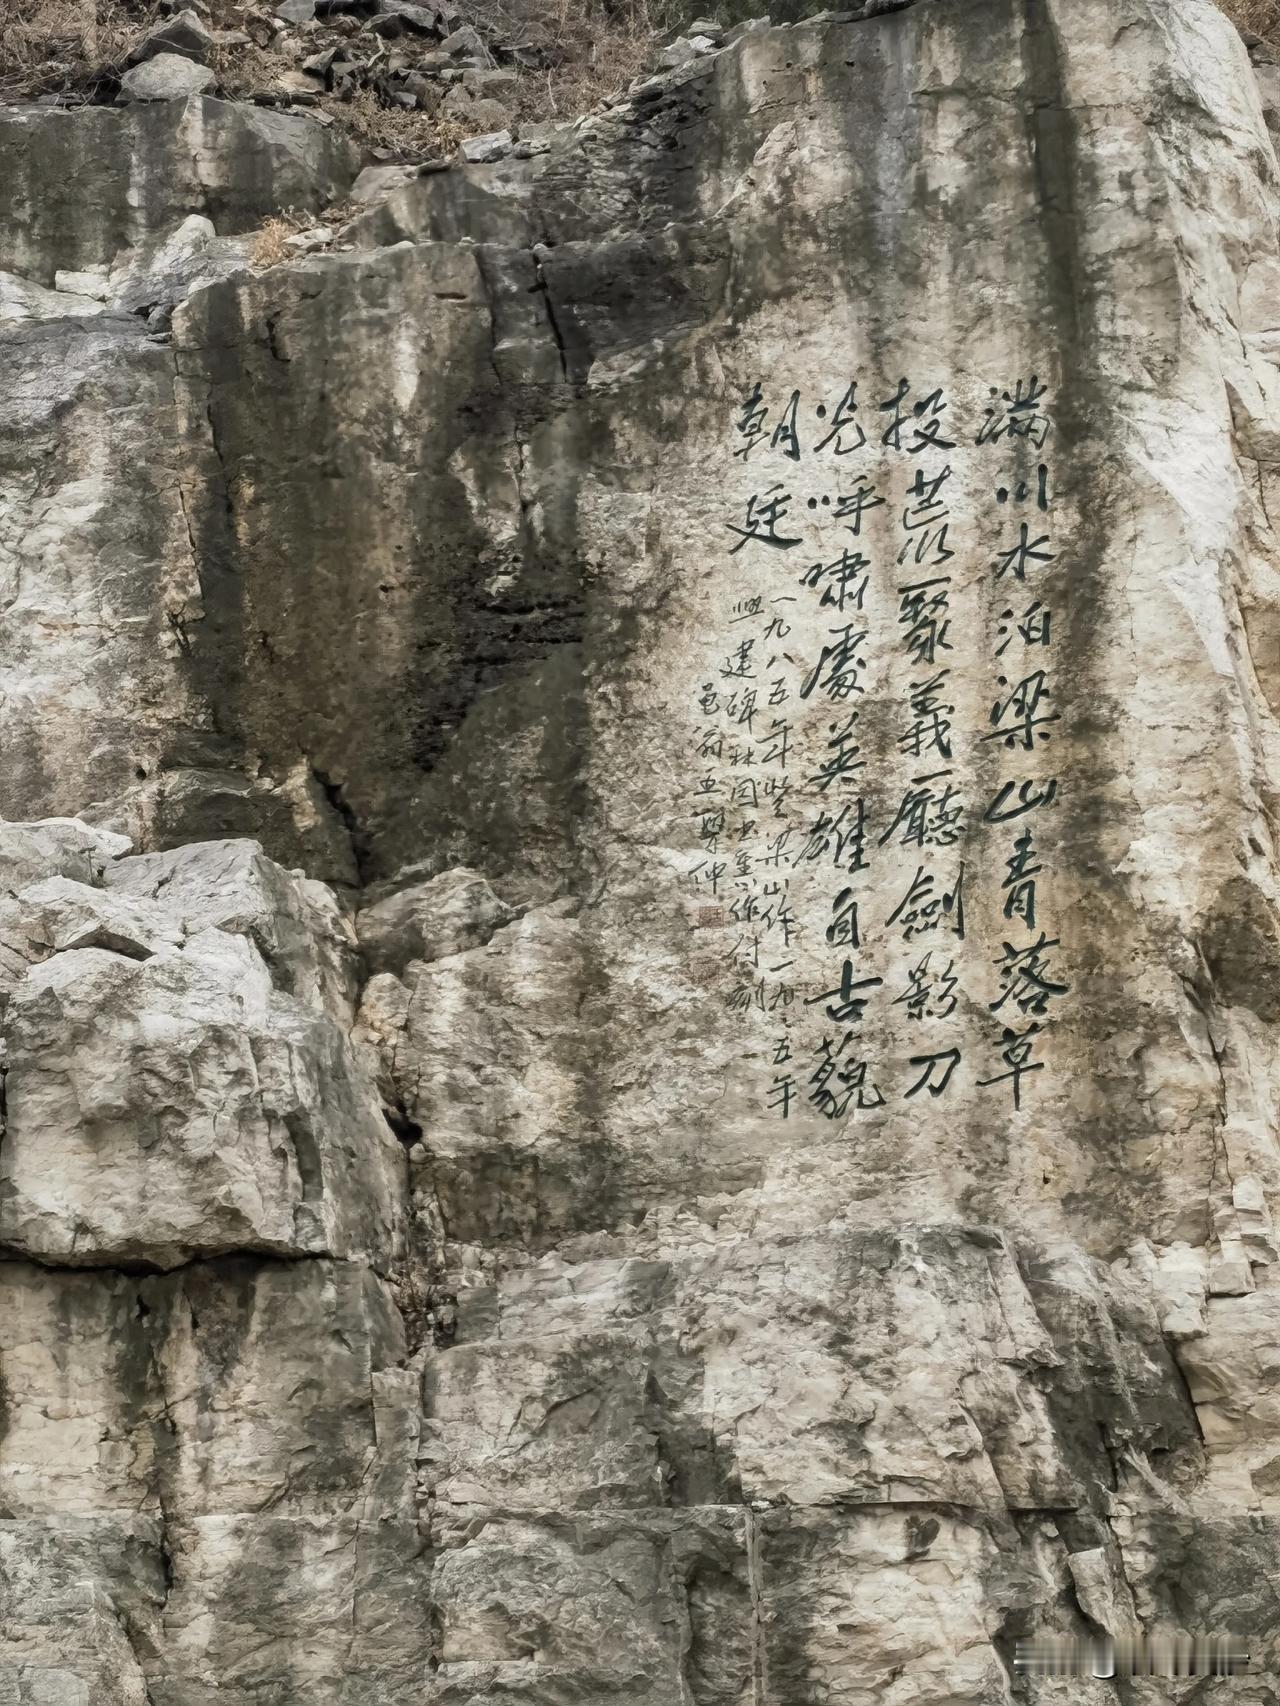 满川水泊梁山青落草
投荒聚義廳劍影刀
光呼嘯處英雄自古藐
朝廷
一九八五年登梁山作一九 五年
興建碑林 作付刻
黾翁王學仲